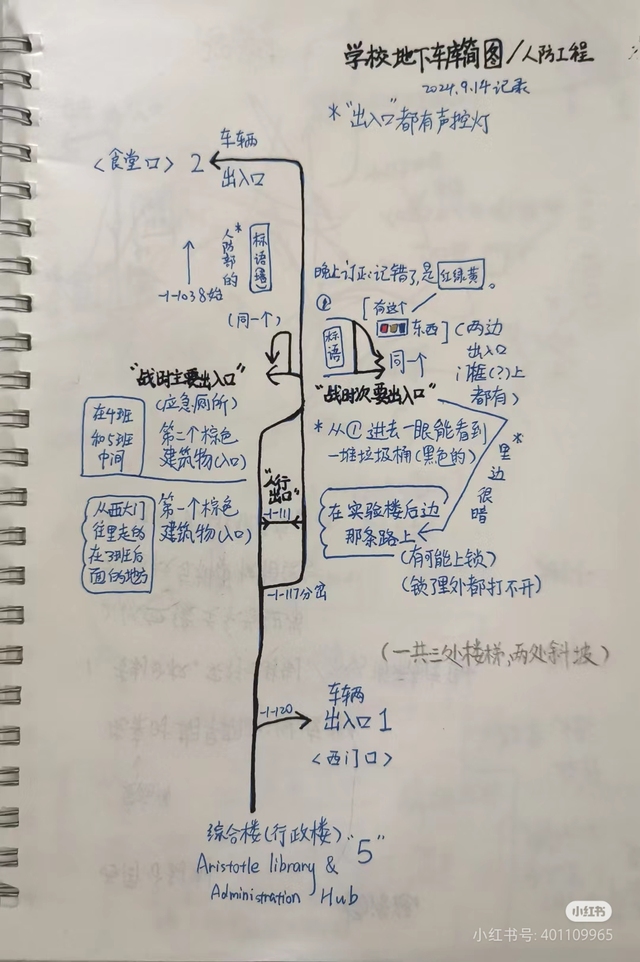 学校地下车库简图/人防工程
2024.9.14记录
*"出入口"都有声控灯
车辆
出入口
2
<食堂口>
*人防部的
标语墙
-1-103始
(同一个)
晚上订正:记错了,是红绿黄。
①
[有这个
东西]
(两边
出入口
门框(?)上
都有)
标语
同一个
"战时主要出入口"
(应急厕所)
在4班
和5班
中间
第二个棕色
建筑物(入口)
"战时次要出入口"
*从①进去一眼能看到
一堆垃圾桶(黑色的)
*里边很暗
"人行
出口"
-1-111
从西大门
往里走的
在3班后
面的地方
第一个棕色
建筑物(入口)
在实验楼后边
那条路上
(有可能上锁)
(锁了里外都打不开)
-1-117分岔
(一共三处楼梯,两处斜坡)
-1-120
车辆
出入口1
<西门口>
综合楼(行政楼)"5"
Aristotle library &
Administration Hub
小红书
小红书号: 401109965